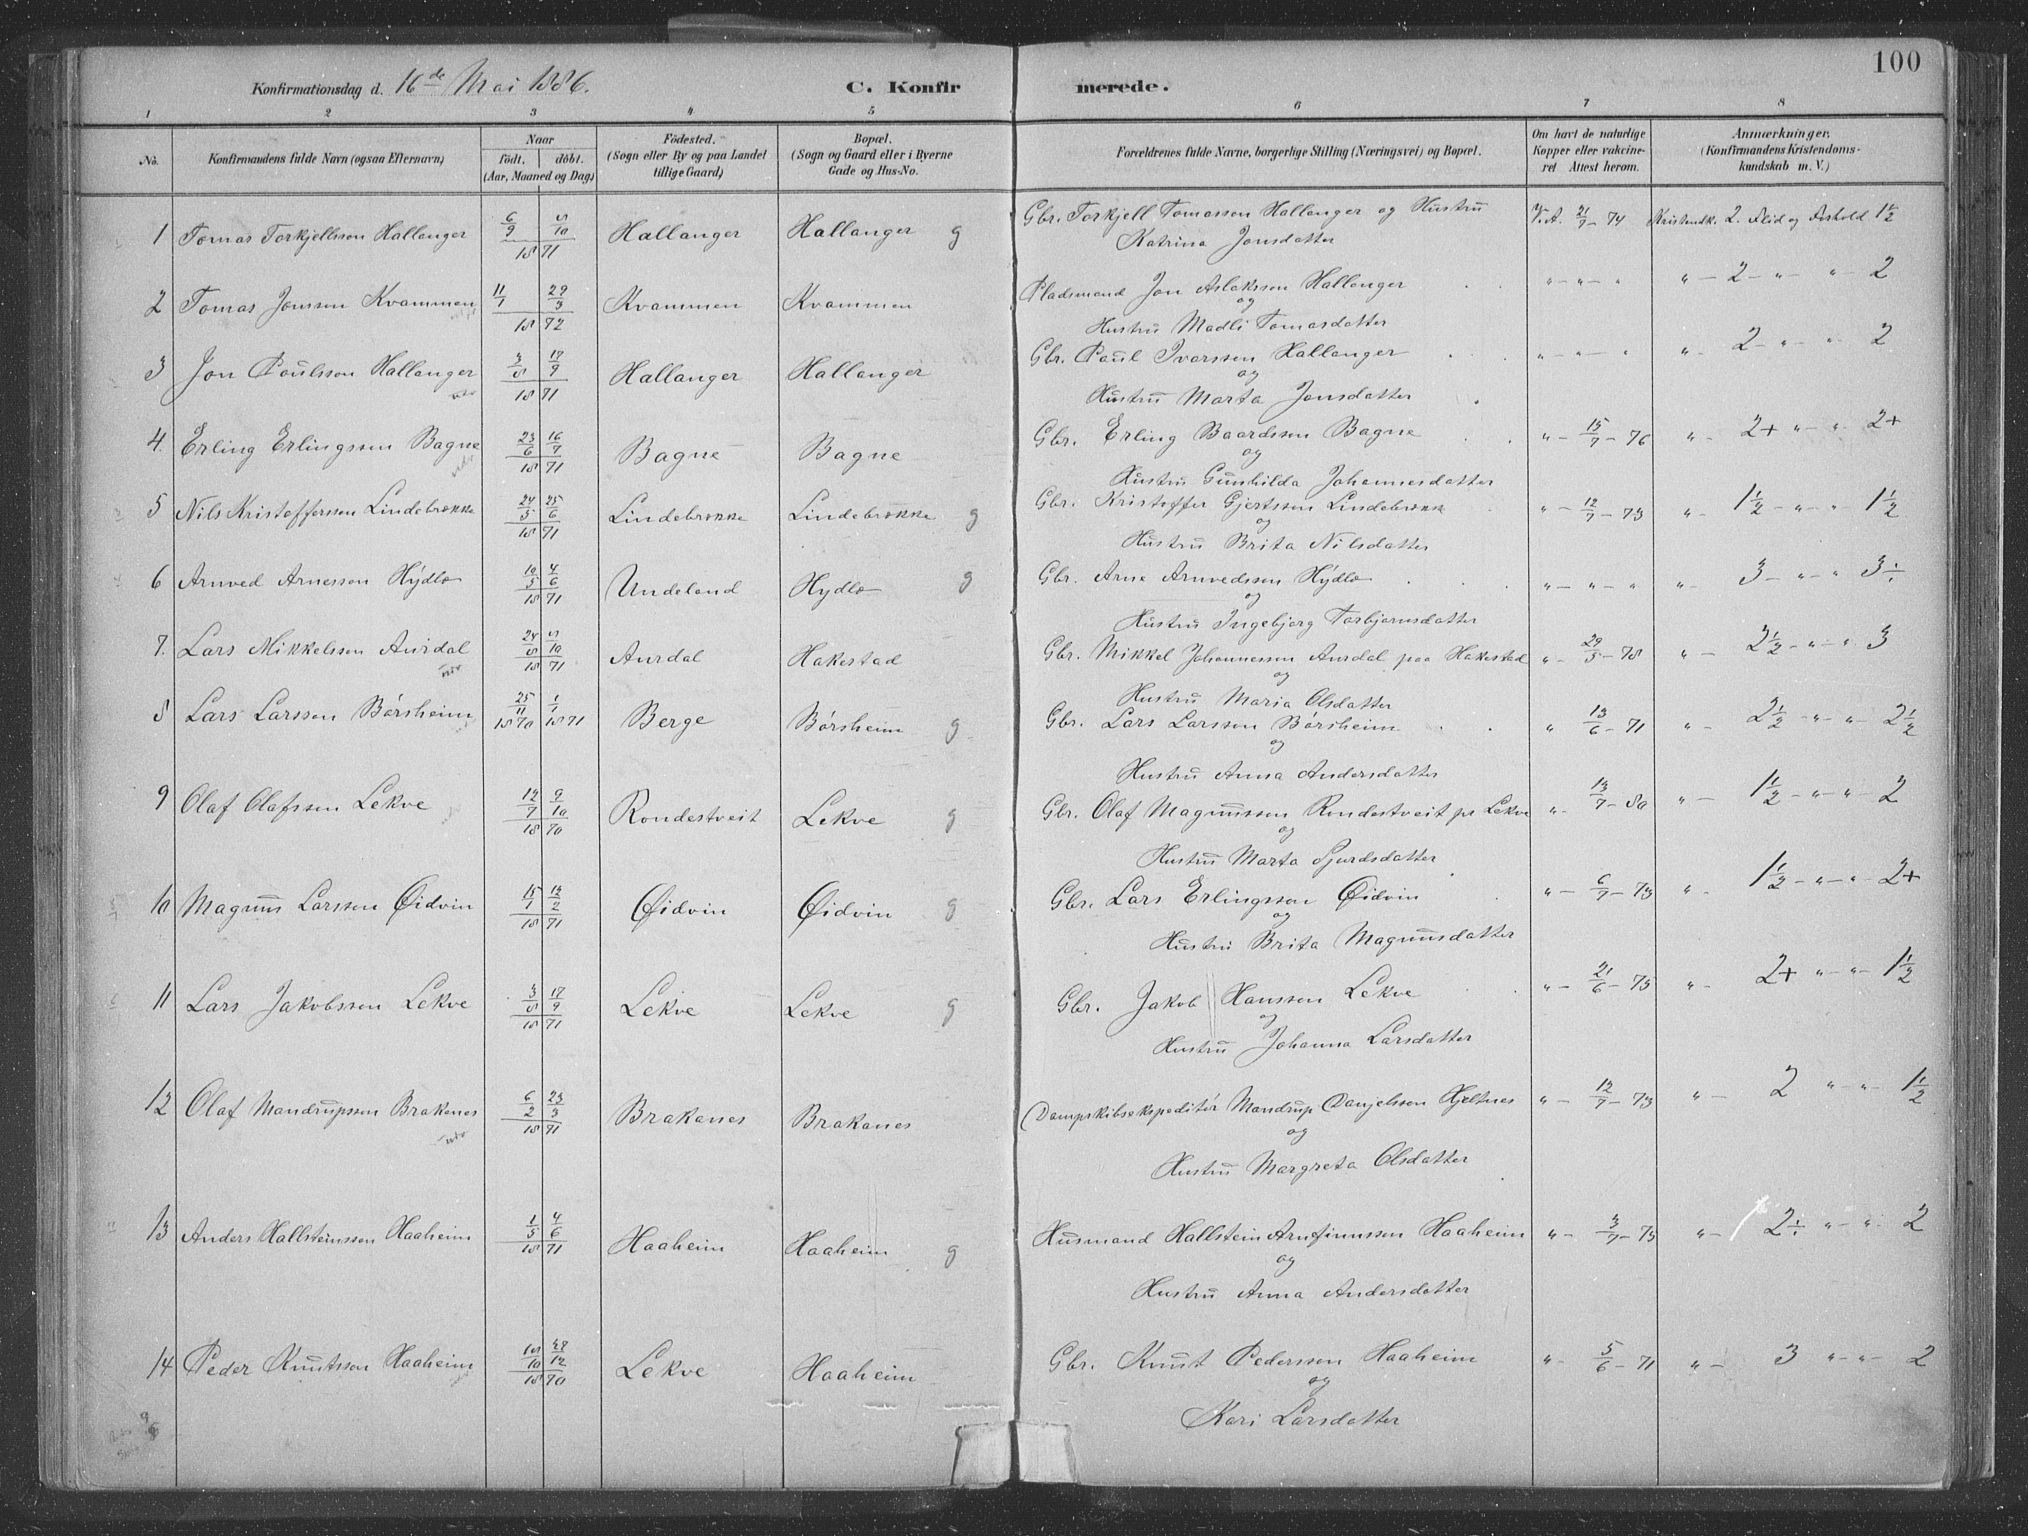 100
Konfirmationsdag d. 16de Mai 1886. C. Konfirmerede.
1 2 3 4 5 6 7 8
No. Konfirmandens fulde Navn (ogsaa Efternavn) Naar født. døbt. (Aar, Maaned og Dag) Födested. (Sogn eller By og paa Landet tillige Gaard) Bopæl. (Sogn og Gaard eller i Byerne Gade og Hus-No. Forældrenes fulde Navne, borgerlige Stilling (Næringsvei) og Bopæl. Om havt de naturlige Kopper eller vakcineret Attest herom. Anmærkninger. (Konfirmandens Kristendomskundskab m. V.)
1 Tomas Torkjellsson Hallanger 6/9 5/10 1871 Hallanger Hallanger g Gbr. Torkjell Tomasson Hallanger og Hustru V.A. 21/7 - 74 Kristendk. 2. Flid og Forhold 1 1/2
Katrina Jonsdatter
2 Tomas Jonsson Kvammen 11/1 29/3 1872 Kvammen Kvammen Pladsmand Jon Aslaksson Hallanger " - " - " " - 2 - " - " - 2
og
Hustru Madli Tomasdatter
3 Jon Poulsson Hallanger 3/8 17/9 1871 Hallanger Hallanger Gbr. Paul Ivarsson Hallanger " - " - " " - 2 - " - " - 2
og
Hustru Marta Jonsdatter
4. Erling Erlingsson Bagne 23/6 16/7 1871 Bagne Bagne Gbr. Erling Baardsson Bagne " - 15/7 - 76 " - 2+ " - " - 2+
og
Hustru Gunhilda Johannesdatter
5 Nils Kristoffersson Lindebrække 24/5 25/6 1871 Lindebrække Lindebrække g Gbr. Kristoffer Gjertsson Lindebrække " - 12/7 - 73 " - 1 1/2 - " - " - 1 1/2
og
Hustru Brita Nilsdatter
6 Arnved Arnesson Hydlo 10/5 4/6 1871 Undeland Hydlo g Gbr. Arne Arnvedsson Hydlo " - " - " " - 3 - " - " 3÷
og
Hustru Ingebjorg Torbjornsdatter
7. Lars Mikkelsson Aurdal 24/8 5/10 1871 Aurdal Hakestad Gbr. Mikkel Johannesson Aurdal paa Hakestad " - 29/5 - 78 " - 2 1/2 - " - " 3
og
Hustru Maria Olsdatter
8 Lars Larsson Børsheim 25/11 1870 1/1 1871 Berge Børsheim g Gbr. Lars Larsson Børsheim " 13/6 - 71 " - 2 1/2 - " - " - 2 1/2
og
Hustru Anna Andersdatter
9 Olaf Olafsson Lekve 12/7 9/10 1870 Rondestveit Lekve g Gbr. Olaf Magnusson Rondestveit pr Lekve " - 13/7 - 80 " - 1 1/2 - " - " - 2
og
Hustru Marta Sjurdsdatter
10 Magnus Larsson Øidvin 15/1 12/2 1871 Øidvin Øidvin g Gbr. Lars Erlingsson Øidvin " - 6/7 - 73 " - 1 1/2 - " - " - 2+
og
Hustru Brita Magnusdatter
11 Lars Jakobsson Lekve 3/8 17/9 1871 Lekve Lekve g Gbr. Jakob Hansson Lekve " - 21/6 - 75 " - 2+ " - " - 1 1/2
og
Hustru Johanna Larsdatter
12 Olaf Mandrupsson Brakanes 6/2 23/3 1871 Brakanes Brakanes Dampskibsekspeditør Mandrup Danjelsson Hjeltnes " - 12/7 - 73 " - 2 " - " - 1 1/2
og
Hustru Margreta Olsdatter
13 Anders Hallsteinsson Haaheim 1/5 4/6 1871 Haaheim Haaheim g Husmand Hallstein Arnfinnsson Haaheim " - 3/7 - 73 " - 2÷ " - " - 2
og
Hustru Anna Andersdatter
14 Peder Knutsson Haaheim 1870 Lekve Haaheim Gbr. Knut Pedersson Haaheim " - 5/6 - 71 " - 3 " - " - 2
og
Kari Larsdatter